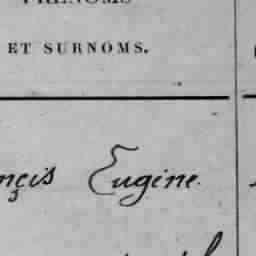 PRÉNOMS
ET SURNOMS.
nçis Eugéne.